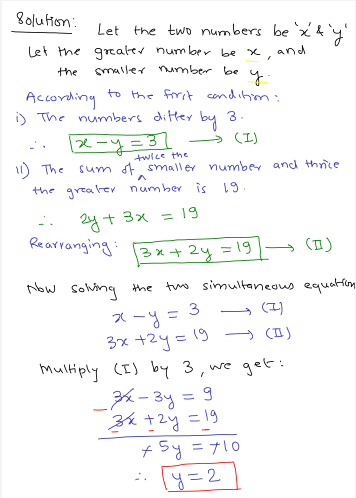 Solution:
Let the two numbers be 'x' & 'y'
Let the greater number be x, and
the smaller number be y.
According to the first condition:
i) The numbers differ by 3.
∴ x - y = 3 → (I)
twice the
ii) The sum of ^ smaller number and thrice
the greater number is 19.
∴ 2y + 3x = 19
Rearranging: 3x + 2y = 19 → (II)
Now solving the two simultaneous equation
x - y = 3 → (I)
3x + 2y = 19 → (II)
Multiply (I) by 3, we get:
3x - 3y = 9
- 3x + 2y = 19
- - -
+ 5y = + 10
∴ y = 2